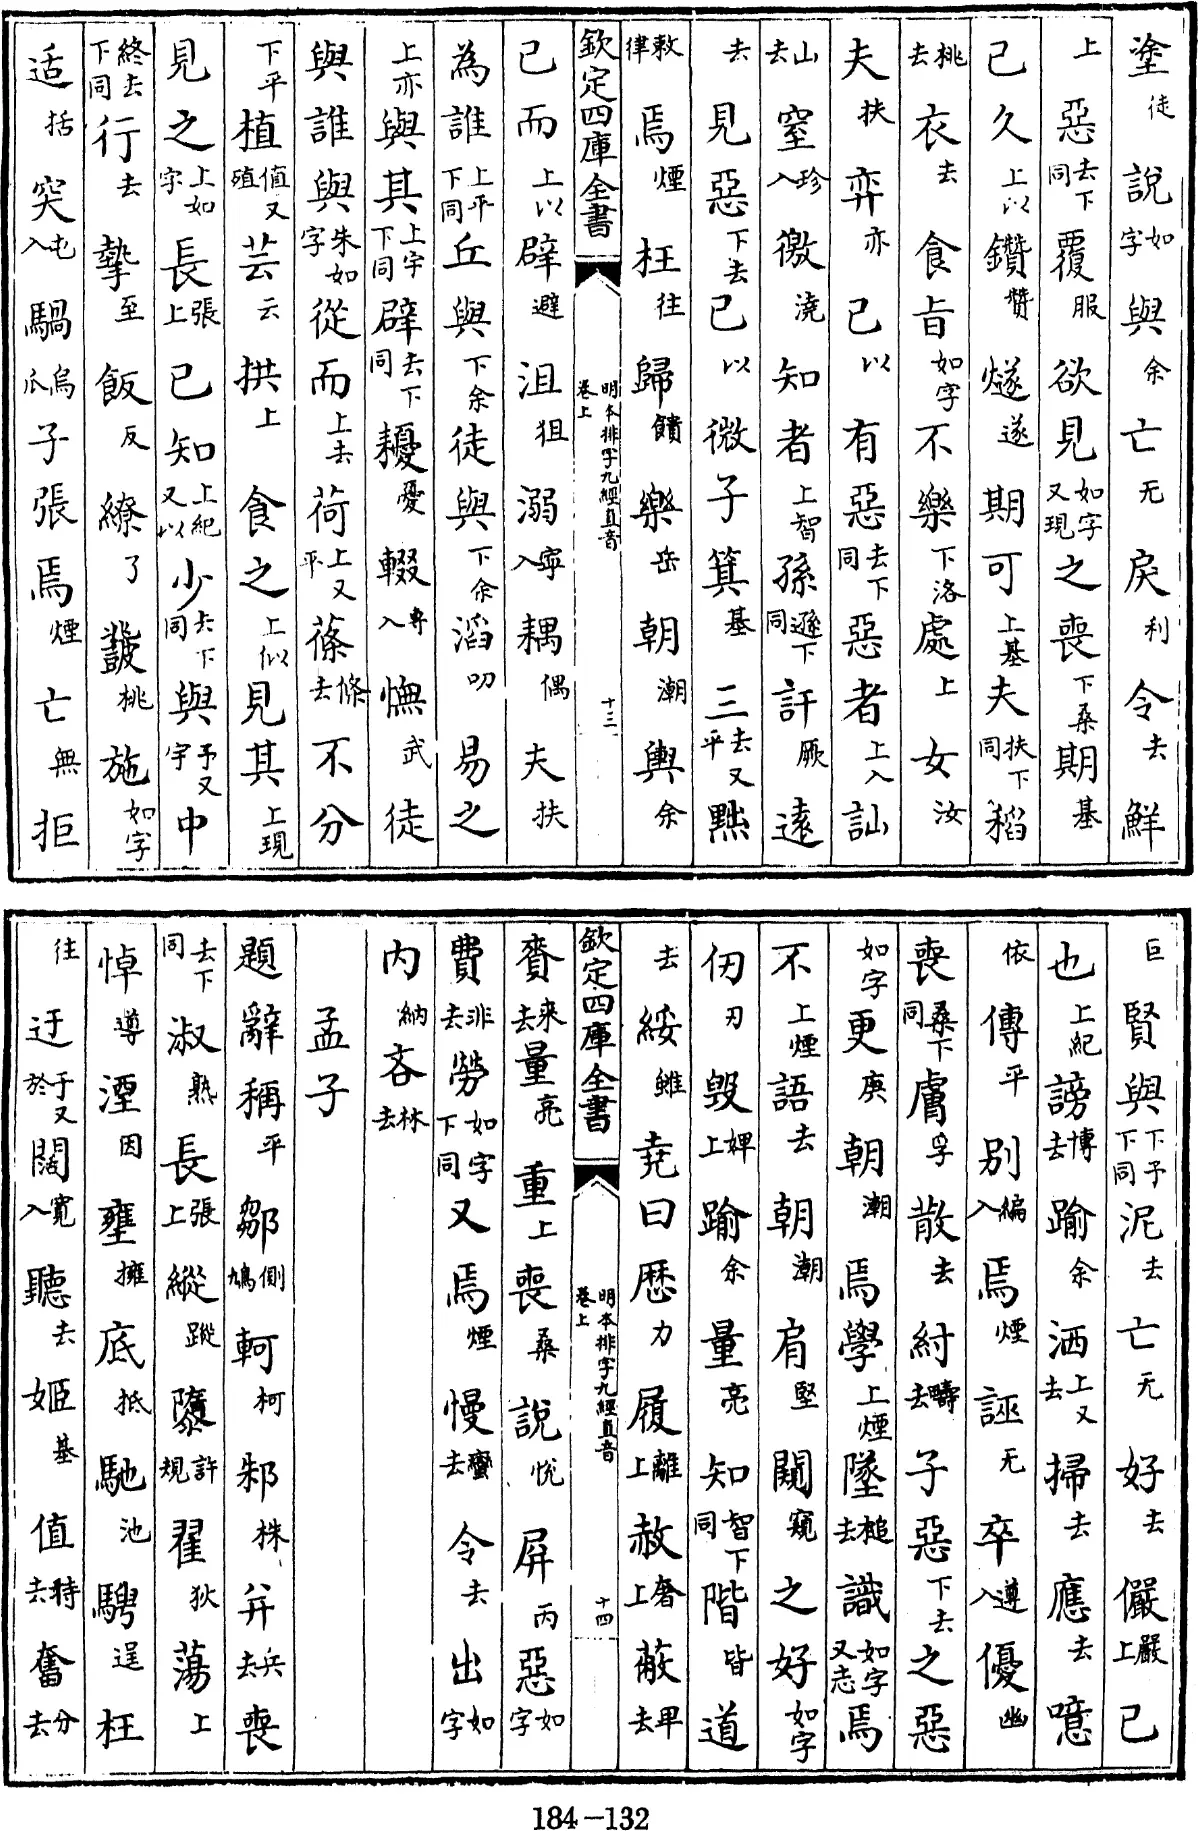 塗徒説如字與余亡无戾利令去鮮
上惡去下同覆服欲見如字又現之喪下桑期基
已久上以鑽贊燧遂期可上基夫扶下同稻
桃去衣去食旨如字不樂下洛處上女汝
夫扶弈亦已以有惡去下同惡者上入訕
山去窒珍入徼澆知者上智孫遜下同訐厥遠
去見惡下去已以微子箕基三去又平黜
敕律焉煙枉往歸饋樂岳朝潮輿余
欽定四庫全書 明本排字九經直音卷上 十三
已而上以辟避沮狙溺寧入耦偶夫扶
為誰上平下同丘與下余徒與下余滔叨易之
上亦與其上字下同辟去下同耰憂輟專入憮武徒
與誰與朱如字從而上去荷上又平蓧條去不分
下平植值又殖芸云拱上食之上似見其上現
見之上如字長張上已知上紀又以少去下同與予又字中
終去下同行去摯至飯反繚了鼗桃施如字
适括突屯入騧烏瓜子張焉煙亡無拒
巨賢與下予下同泥去亡无好去儼嚴上已
也上紀謗博去踰余洒上又去掃去應去噫
依傳平别編入焉煙誣无卒遵入優幽
喪桑下同膚孚散去紂疇去子惡下去之惡
如字更庚朝潮焉學上煙墜槌去識如字又志焉
不上煙語去朝潮肩堅闚窺之好如字
仞刃毁婢上踰余量亮知智下同階皆道
去綏雖堯曰厯力履離上赦奢上蔽畀去
欽定四庫全書 明本排字九經直音卷上 十四
賚来去量亮重上喪桑説悦屏丙惡如字
費非去勞如字下同又焉煙慢蠻去令去出如字
内納吝林去
孟子
題辭稱平鄒側鳩軻柯邾株并兵去喪
去下同淑熟長張上縱蹤隳許規翟狄蕩上
悼導湮因壅擁底抵馳池騁逞枉
往迂于又於闊寛入聽去姬基值特去奮分去
184-132